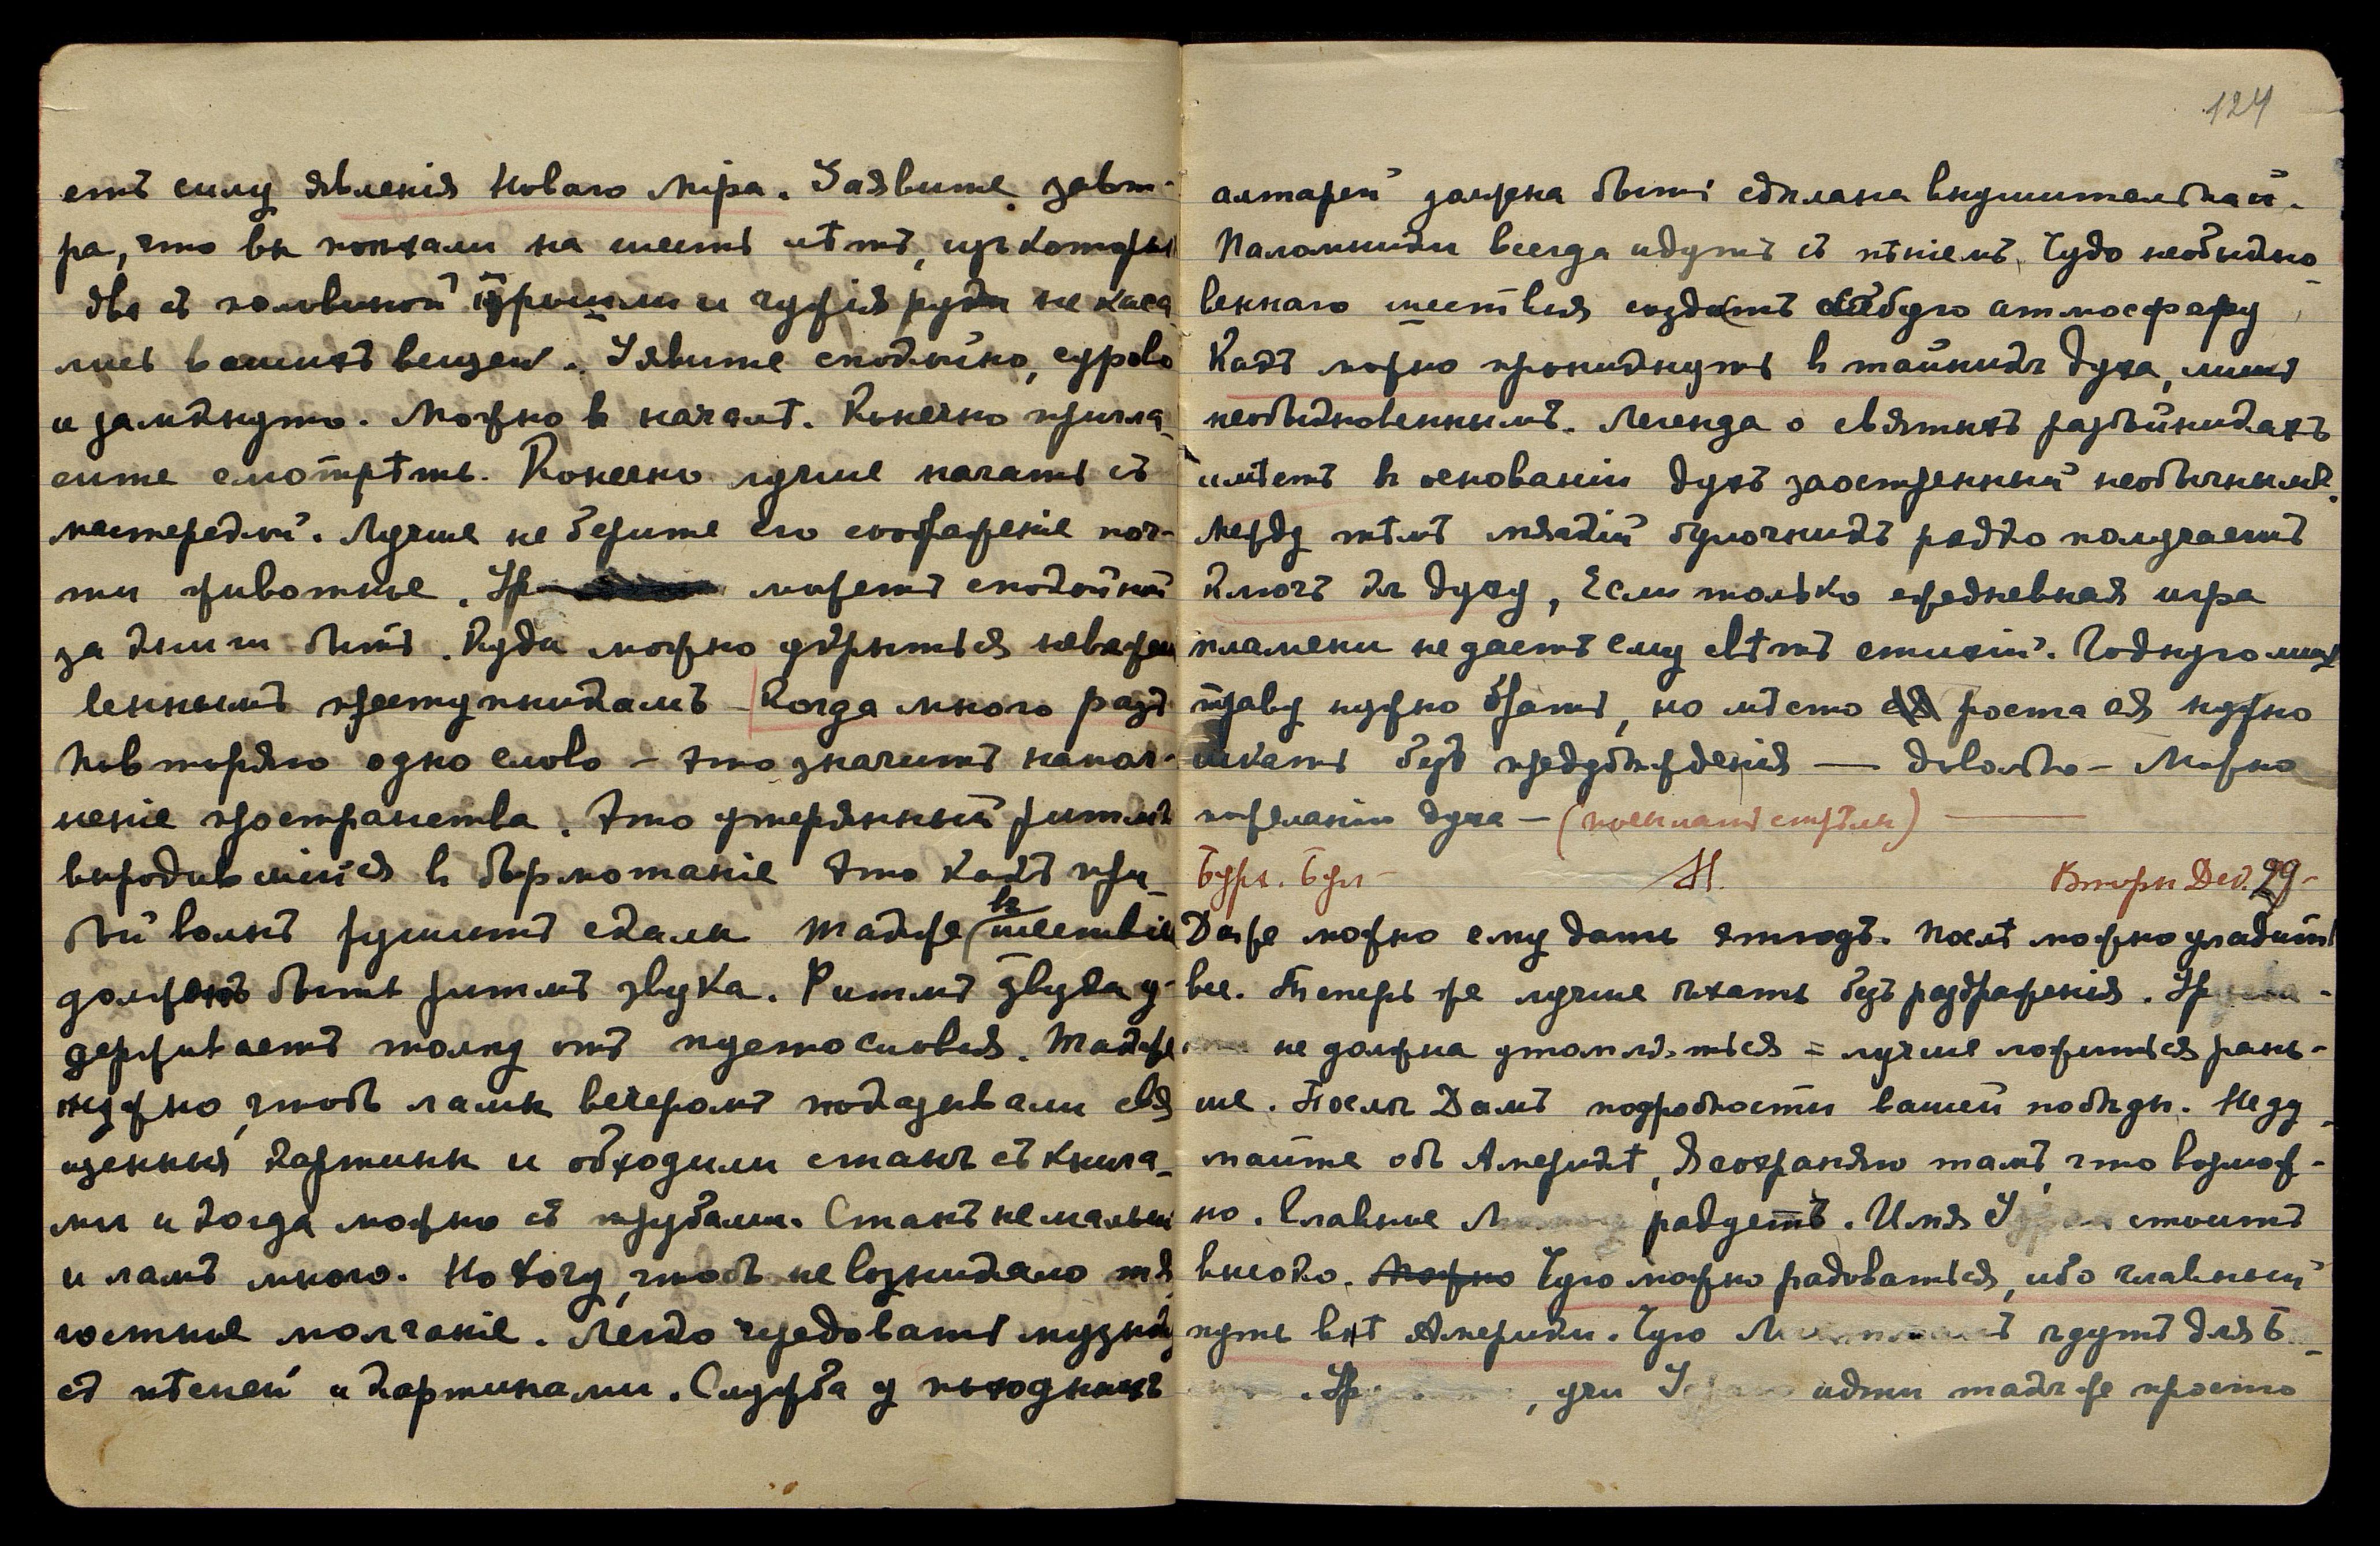 етъ силу явленія Новаго Міра. Заявите завт-
ра, что вы поѣхали на шесть лѣтъ, изъ которы
два съ половиной прошли и чужія руки не каса
лись вашихъ вещей. Заявите спокойно, сурово
и замкнуто. Можно въ началѣ. Конечно пригла-
сите смотрѣть. Конечно лучше начать съ
мастерской. Лучше не берите его соображеніе поч-
ти животное. Ур можетъ спокойной
за книги быть. Куда можно укрыться невѣже
веннымъ преступникамъ — Когда много разъ
повторяю одно слово — это значитъ напол-
неніе пространства. Это утерянный ритмъ
выродившійся в бормотаніе Это какъ при-
бой волнъ рушитъ скалы Также в шествіи
долженъ быть ритмъ звука. Ритмъ звука у-
держиваетъ толпу отъ пустословія. Также
нужно, чтобъ ламы вечеромъ показывали свя
щенныя картины и обходили станъ съ книга-
ми и когда можно съ трубами. Станъ не малый
и ламъ много. Но хочу, чтобъ не возникало тя
гостное молчаніе. Легко чередовать музыку
съ пѣсней и картинами. Служба у походныхъ
124
алтарей должна быть сдѣлана внушительной.
Паломники всегда идутъ съ пѣніемъ. Чудо необыкно-
веннаго шествія создастъ особую атмосферу,
Какъ можно проникнуть в тайники духа, лишь
необыкновеннымъ. Легенда о святыхъ разбойникахъ
имѣетъ в основаніи духъ заостренный необычнымъ.
Между тѣмъ мягкій булочникъ рѣдко получаетъ
ключъ къ духу, Если только ежедневная игра
пламени не даетъ ему свѣтъ стихій. Годную
траву нужно брать, но мѣсто роста ея нужно
искать безъ предубѣжденія — довольно — Можно
пожеланіи духа — (послать стрѣлы) —
М. Вторн Dec. 29-
Даже можно ему дать этюдъ. Послѣ можно уладить
все. Теперь же лучше ѣхать безъ раздраженія. Ур
не должна утомляться = лучше ложиться рань-
ше. Послѣ Дамъ подробности вашей побѣды. Не ду-
майте объ Америкѣ, Я сохраняю тамъ, что возмож-
но. Главное радуетъ. Имя стоитъ
высоко. Можно Чую можно радоваться, ибо главный
путь внѣ Америки. Чую ждутъ для
Ур , учи идти также просто